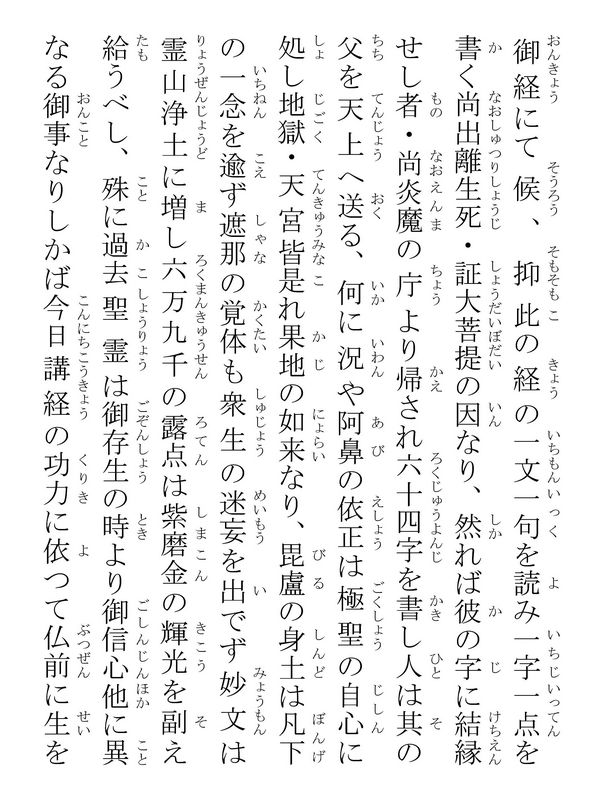 御経にて候、抑此の経の一文一句を読み一字一点を
書く尚出離生死・証大菩提の因なり、然れば彼の字に結縁
せし者・尚炎魔の庁より帰され六十四字を書し人は其の
父を天上へ送る、何に況や阿鼻の依正は極聖の自心に
処し地獄・天宮皆是れ果地の如来なり、毘盧の身土は凡下
の一念を逾ず遮那の覚体も衆生の迷妄を出でず妙文は
霊山浄土に増し六万九千の露点は紫磨金の輝光を副え
給うべし、殊に過去聖霊は御存生の時より御信心他に異
なる御事なりしかば今日講経の功力に依つて仏前に生を